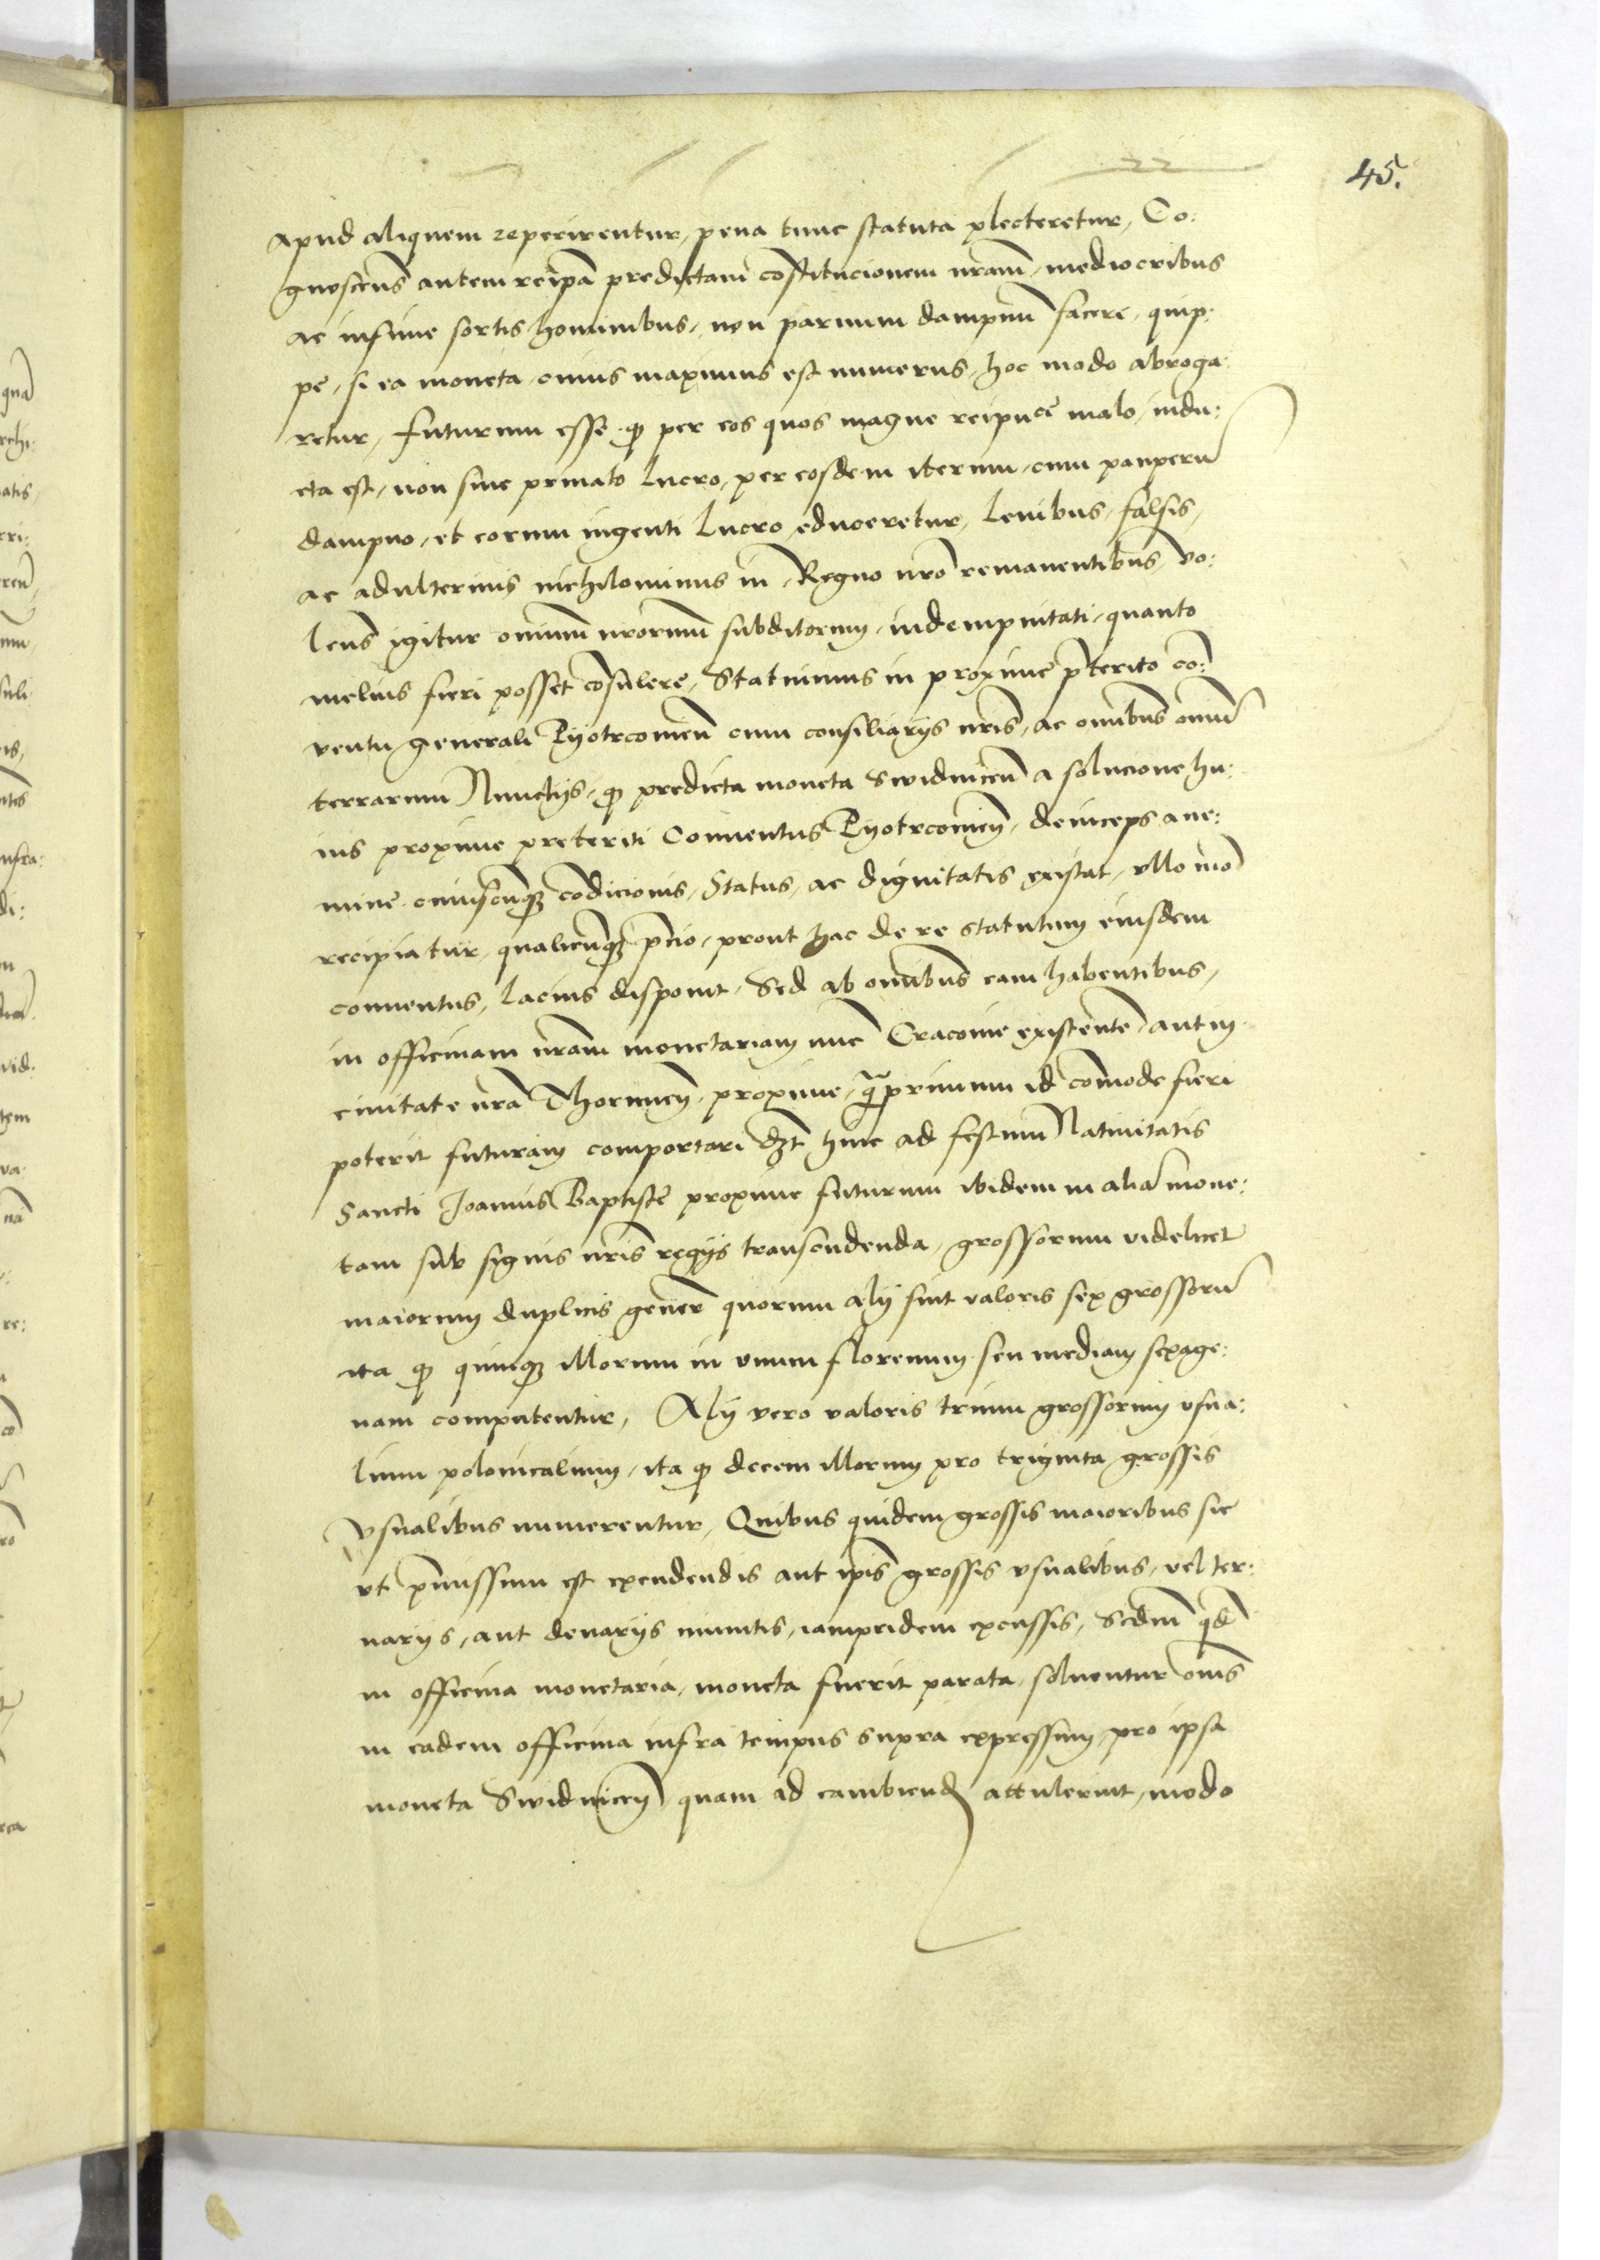 45.
apud aliquem reperirentur, pena tunc statuta plecteretur, Co:
gnoscens autem reipã predictam cõstitucionem nrãm, mediocribus
ac infime sortis hominibus, non paruum dampnũ facere, quip:
pe, si ea moneta, cuius maximus est numerus, hoc modo abroga:
retur, futurum esse, ꝙ per eos quos magne reipuce malo, indu:
cta est, non sine priuato lucro, per eosdem iterum, cum pauperũ
dampno, et eorum ingenti lucro, educeretur, leuibus, falsis,
ac adulterinis nichilominus in Regno nrõ remanentibus, vo:
lens igitur oniũm nrorum subditorum, indempnitati, quanto
melius fieri posset cõsulere, Statuimus in proxime pterito cõ:
uentu generali Pyotrcouień cum consiliarijs nrĩs, ac omnibus oniũ
terrarum Nunctijs, ꝙ predicta moneta Swidniceń a solucione hu:
ius proxime preteriti Conuentus Pyotrcouień, deinceps a ne:
mine cuiuscunqꝫ cõdicionis, Status, ac dignitatis existat, vllo mõ
recipiatur, qualicunqꝫ pcio, prout hac de re statutum eiusdem
conuentus, lacius disponit, Sed ab omnibus eam habentibus,
in officinam nrãm monetariam nunc Cracouie existentẽ aut in
ciuitate nrã Thorunień, proxime, qprimum id cõmode fieri
poterit futuram comportari dꝫt hinc ad festum Natiuitatis
Sancti Joannis Baptiste proxime futurum ibidem in aliã mone:
tam sub signis nrĩs regijs transcudenda, grossorum videlicet
maiorum duplicis generis quorum alij sint valoris sex grossorũ
ita ꝙ quinqꝫ illorum in vnum florenum seu mediam sexage:
nam computentur, Alij vero valoris trium grossorum vsua:
lium polonicalium, ita ꝙ decem illorum pro triginta grossis
vsualibus numerentur, Quibus quidem grossis maioribus sic
vt pmissum est excudendis aut ipĩs grossis vsualibus, vel ter:
narijs, aut denarijs minutis, iampridem excussis, Scdm qd
in officina monetaria, moneta fuerit parata, soluentur oms
in eadem officina infra tempus supra expressum, pro ipsa
moneta Swidniceń quam ad cambiend attulerint, modo